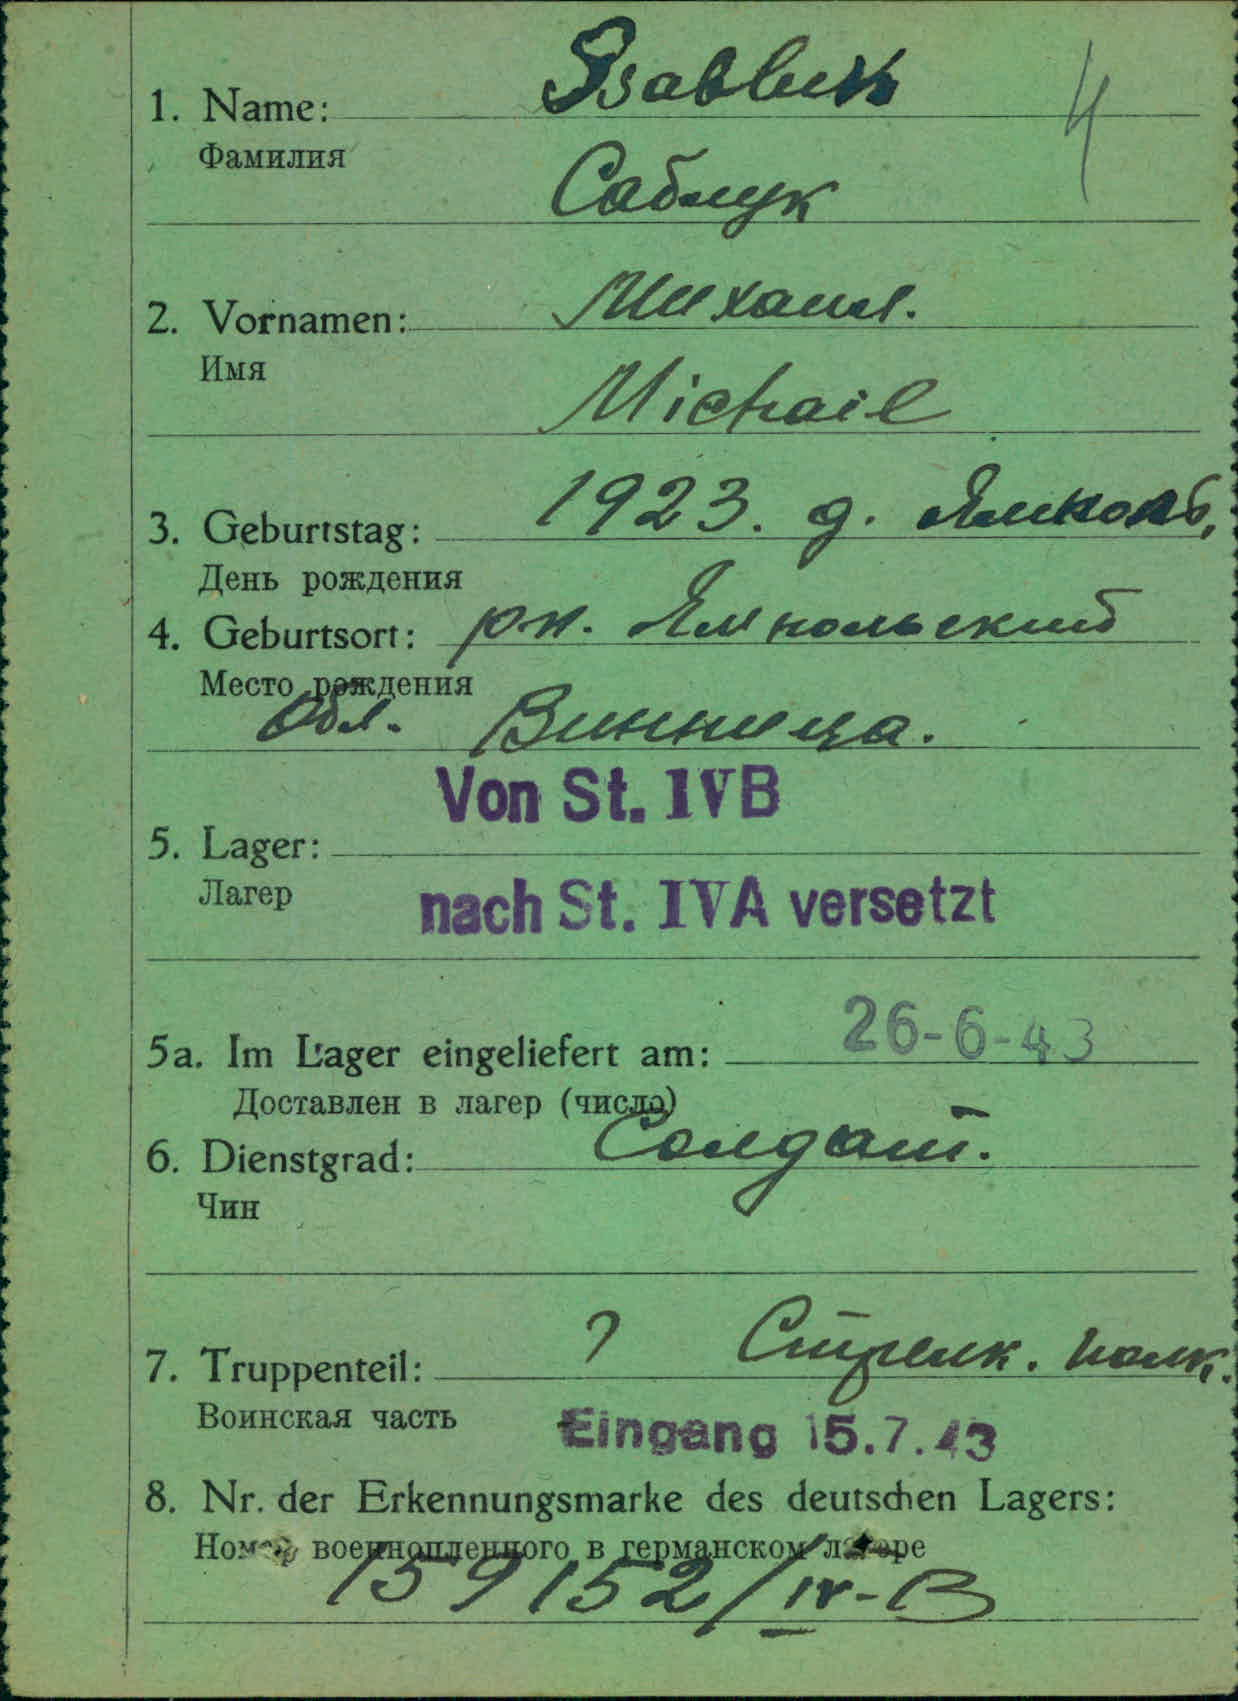 1. Name: Ssabluk
Фамилия
Саблук
2. Vornamen: Михаил.
Имя
Michail
3. Geburtstag: 1923. д.
День рождения
4. Geburtsort: рн. Ямпольский
Место рождения
Обл. Винница.
Von St. IVB
5. Lager:
Лагер
nach St. IVA versetzt
5a. Im Lager eingeliefert am: 26-6-43
Доставлен в лагер (число)
6. Dienstgrad: Солдат.
Чин
7. Truppenteil: ? Стрелк. полк.
Воинская часть
Eingang 15.7.43
8. Nr. der Erkennungsmarke des deutschen Lagers:
Номер военнопленного в германском лагере
159152/IV-B